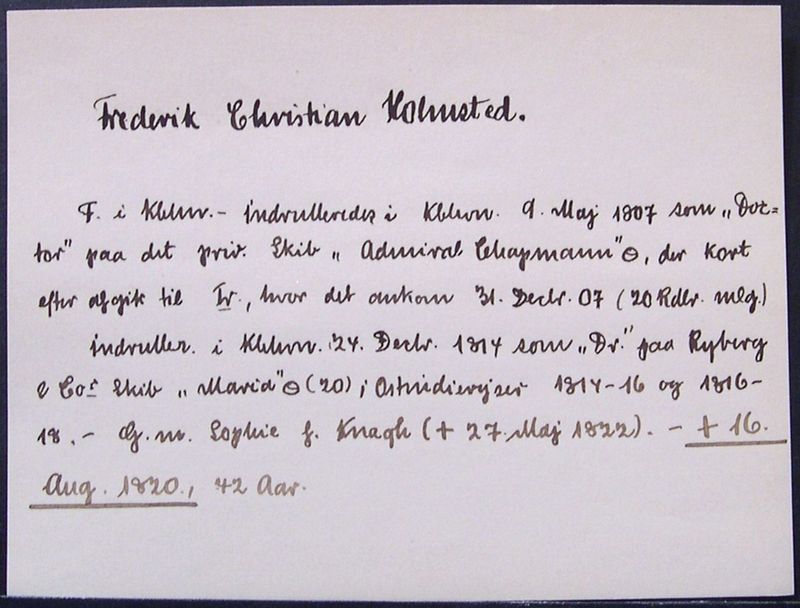 Frederik Christian Holmsted.
F. i Kbhvn. - indrulleredes i Kbhvn. 9. Maj 1807 som „Doc=
tor" paa det priv. Skib „Admiral Chapmann" ⊖, der kort
efter afgik til Tr., hvor det ankom 31. Decbr. 07 (20 Rdlr. mlg.)
indruller. i Kbhvn. 24. Decbr. 1814 som „Dr." paa Ryberg
& Co.s Skib „Maria" ⊖ (20) i Ostindierejser 1814-16 og 1816-
18. - G. m. Sophie f. Knagh († 27. Maj 1822). - † 16.
Aug. 1820., 42 Aar.